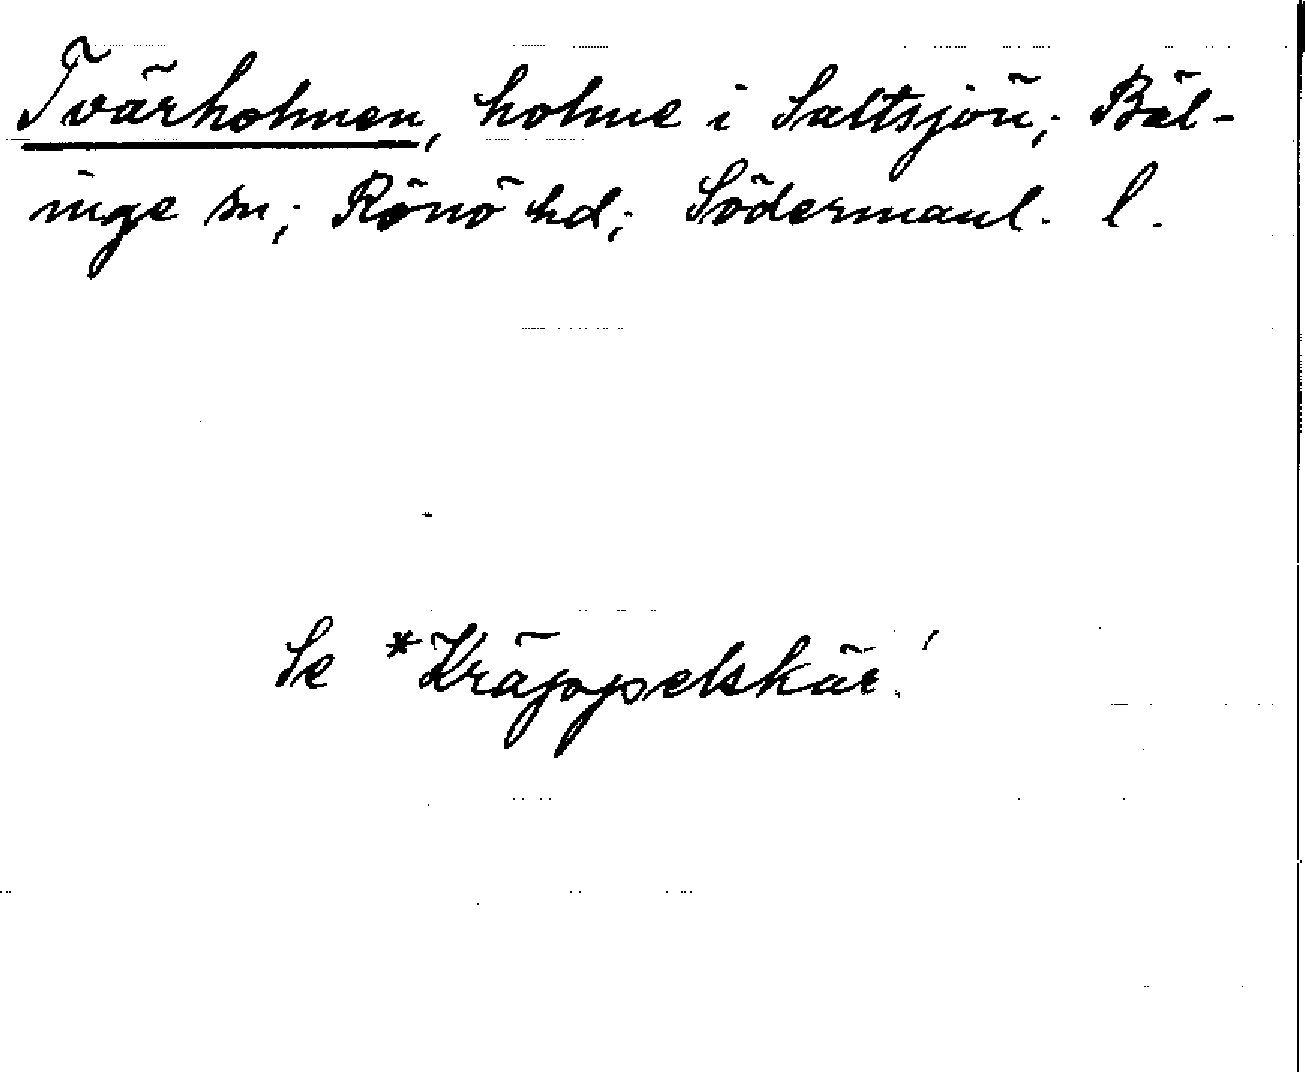 Tvärholmen, holme i Saltsjön; Bäl-
inge sn; Rönö hd; Södermanl. l.
Se *Kräppelskär!